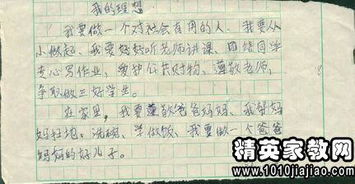 我的理想
我要做一个对社会有用的人。我要从
小做起、我要好好听老师讲课、团结同学
专心写作业、爱护公共财物、尊敬老师、
争取做三好学生。
在家里，我要尊敬爸爸妈妈、我帮妈
妈扫地、洗碗、学做饭、我要做一个爸爸
妈妈的好儿子。
精英家教网
www.1010jiajiao.com